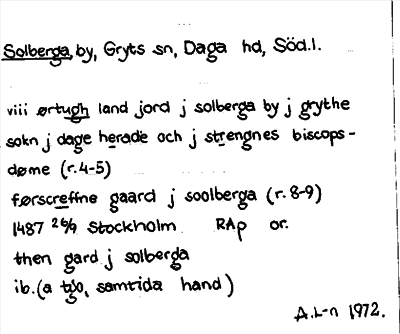 Solberga, by, Gryts sn, Daga hd, Söd.l.
viii ørtugh land jord j solberga by j grythe
sokn j dage herade och j strengnes biscops-
døme (r.4-5)
førscreffne gaard j soolberga (r.8-9)
1487 26/9 Stockholm RAp or.
then gard j solberga
ib. (a tgo, samtida hand)
A.L-n 1972.